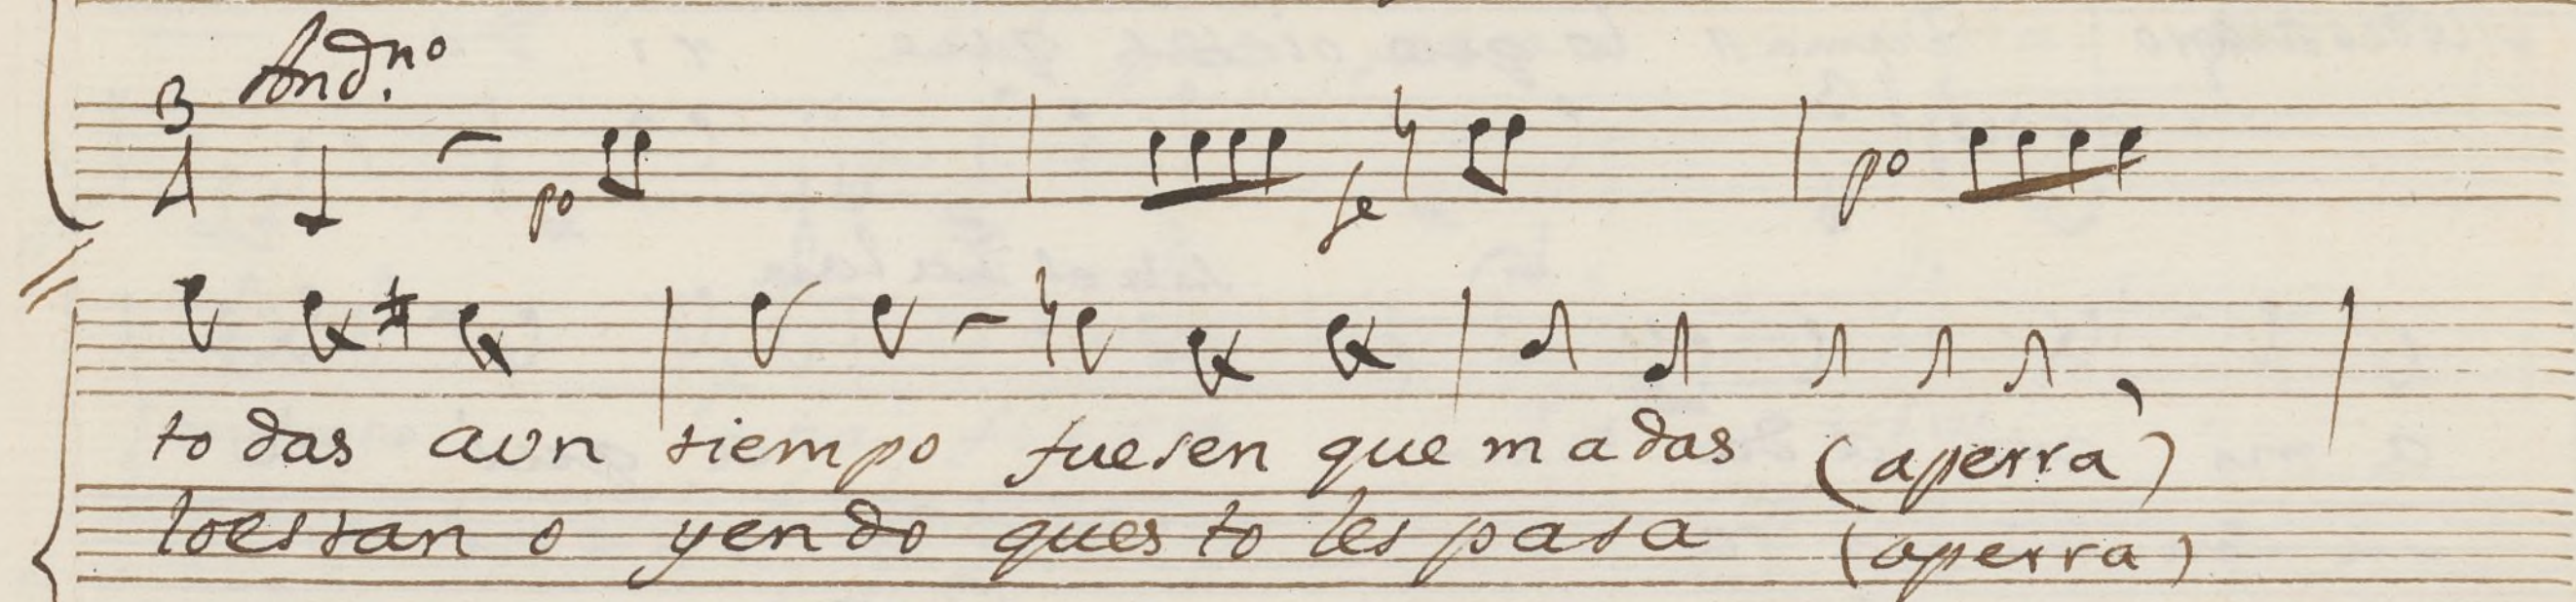 Andno
3
4
po fe po
to das aun tiempo fuesen que m a das (aperrà)
loestan o yendo ques to les pasa (aperra)